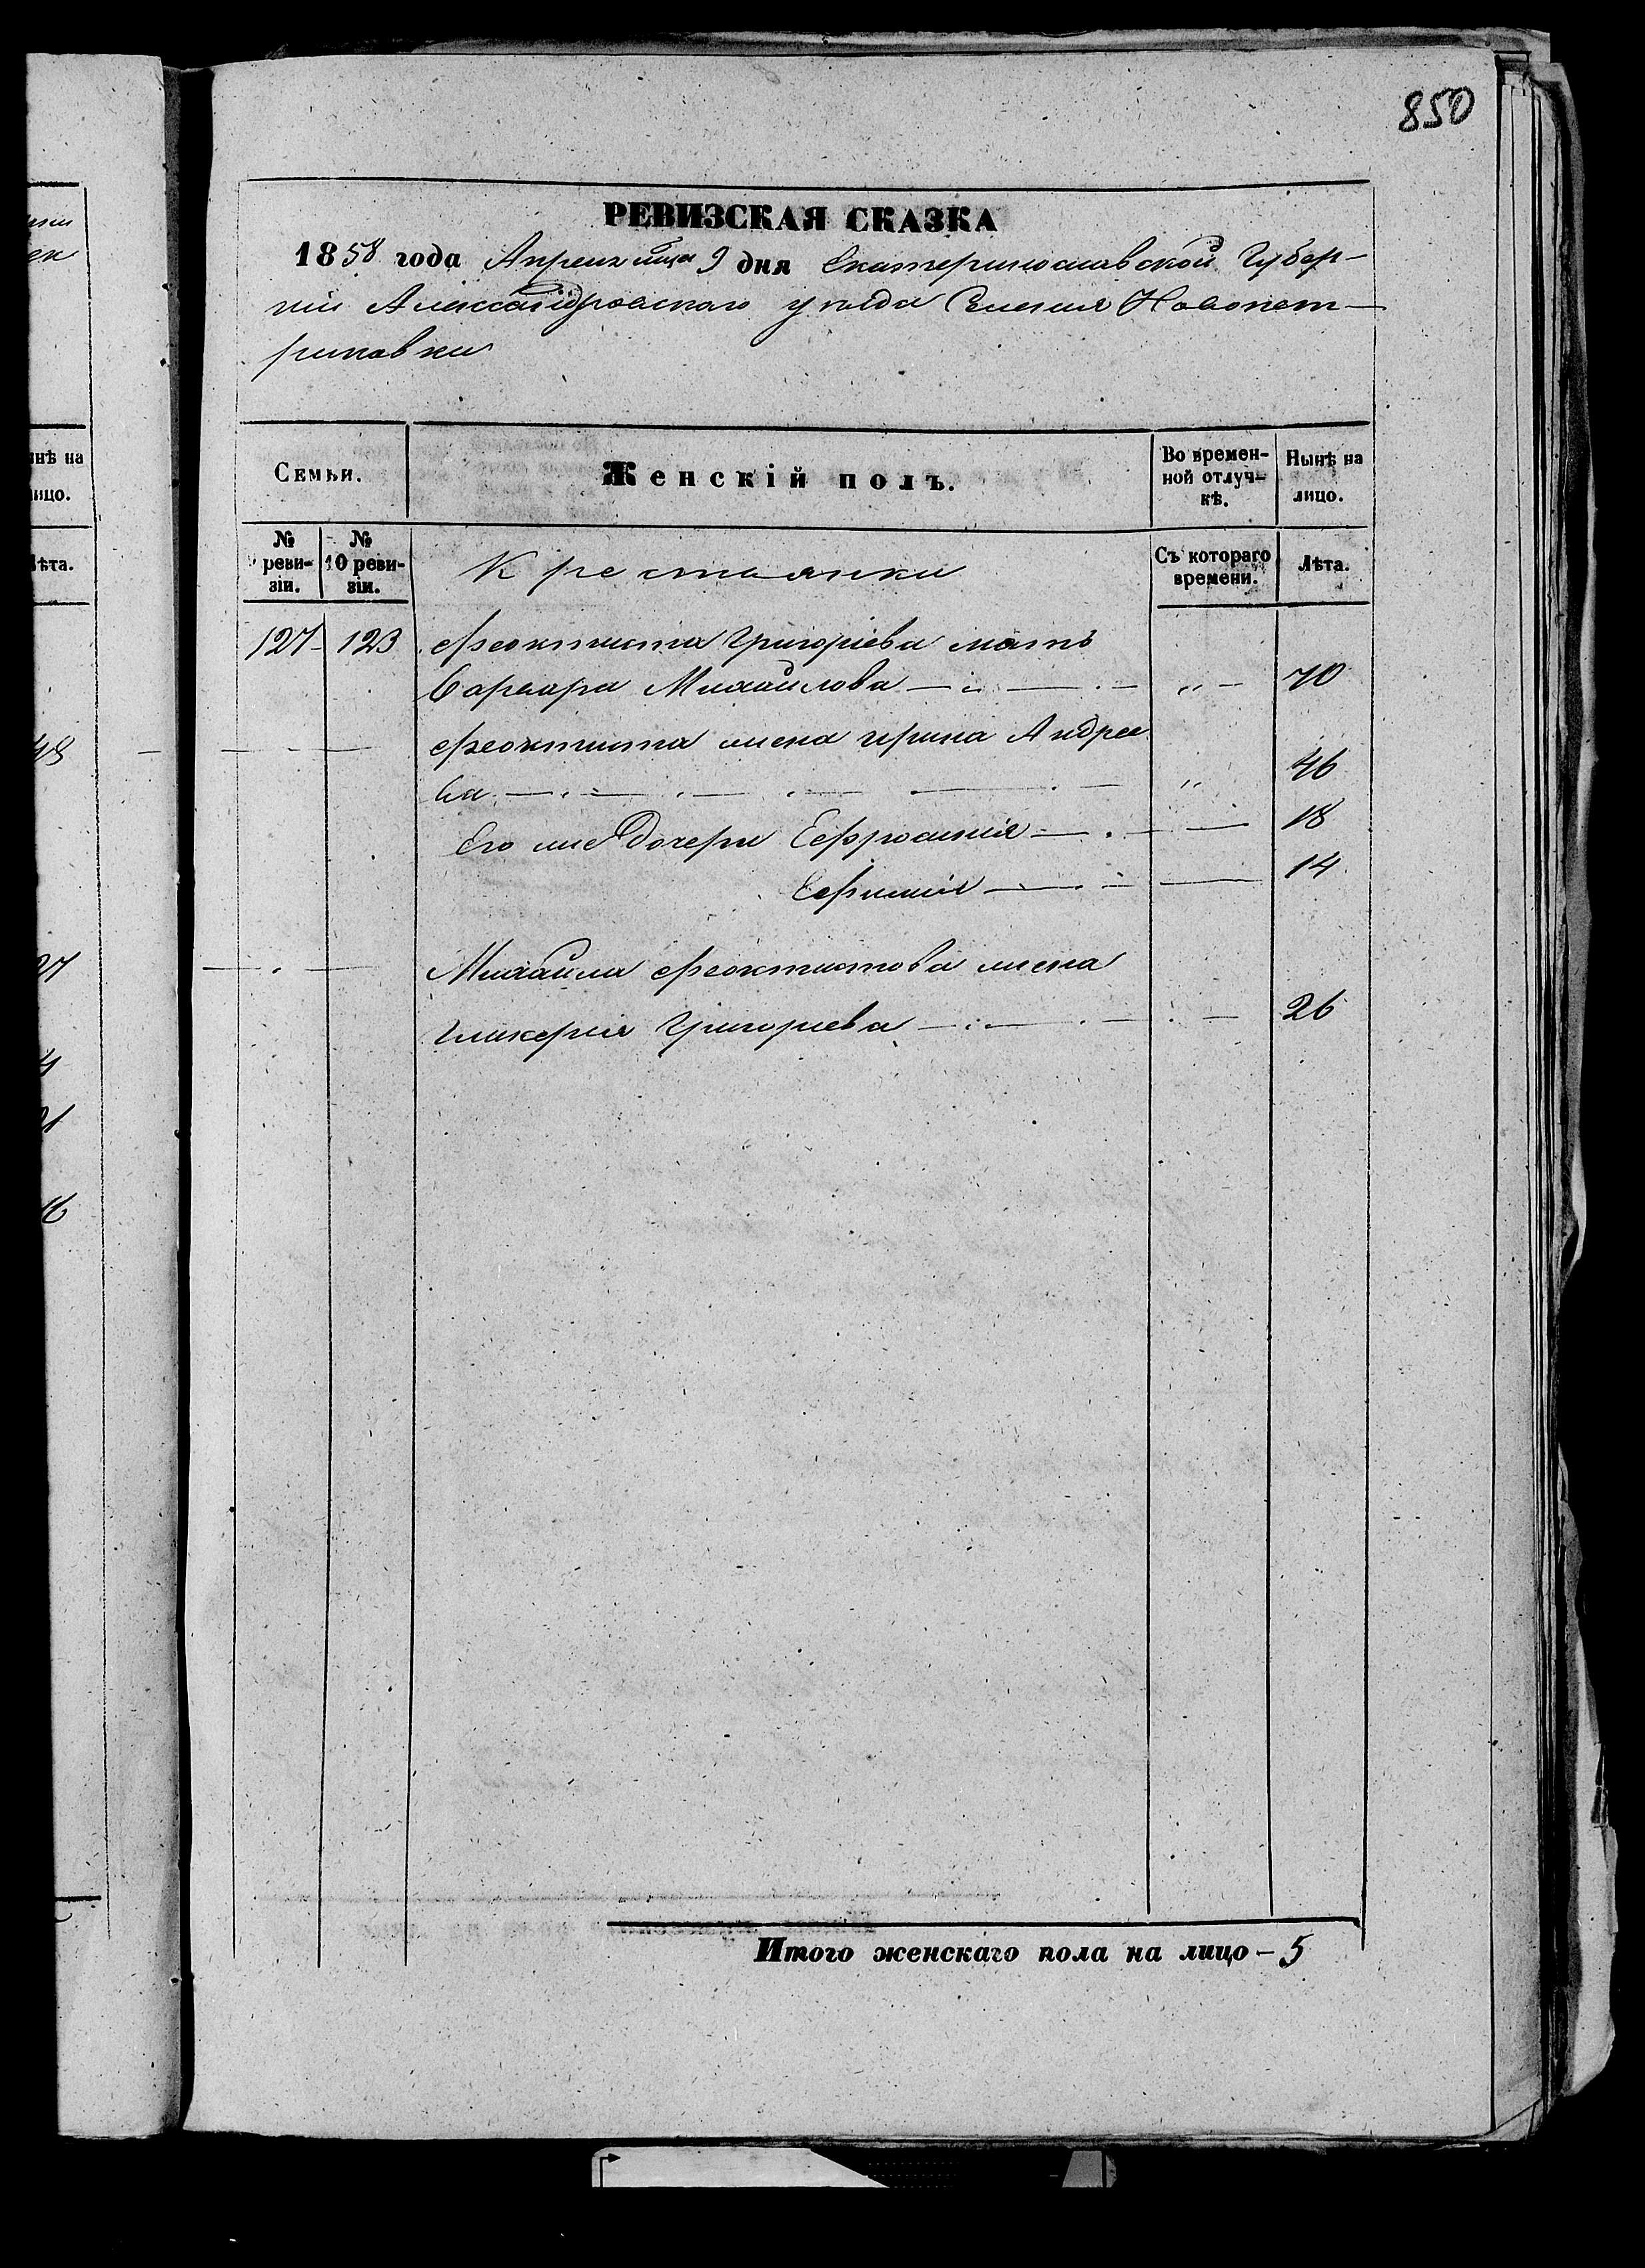 850
РЕВИЗСКАЯ СКАЗКА
1858 года Апреля мца 9 дня Екатеринославской Губер-
нии Александровскаго уѣзда Селения Новопет-
риковки
Семьи.
Женскій полъ.
Во времен-
ной отлуч-
кѣ.
Нынѣ на
лицо.
№
реви-
зіи.
№
10 реви-
зіи.
Крестьянки
Съ котораго
времени.
Лѣта.
127 123 Феоктиста Григоріева мать
Варвара Михайлова — „ — 70
Феоктиста жена Ирина Андрее
ва — „ 46
Его же Дочери Еефросинія — 18
Еефимія — 14
Михаила Феоктистова жена
Гликерія Григориева — 26
Итого женскаго пола на лицо - 5
нѣ на
ицо.
ѣта.
48
27